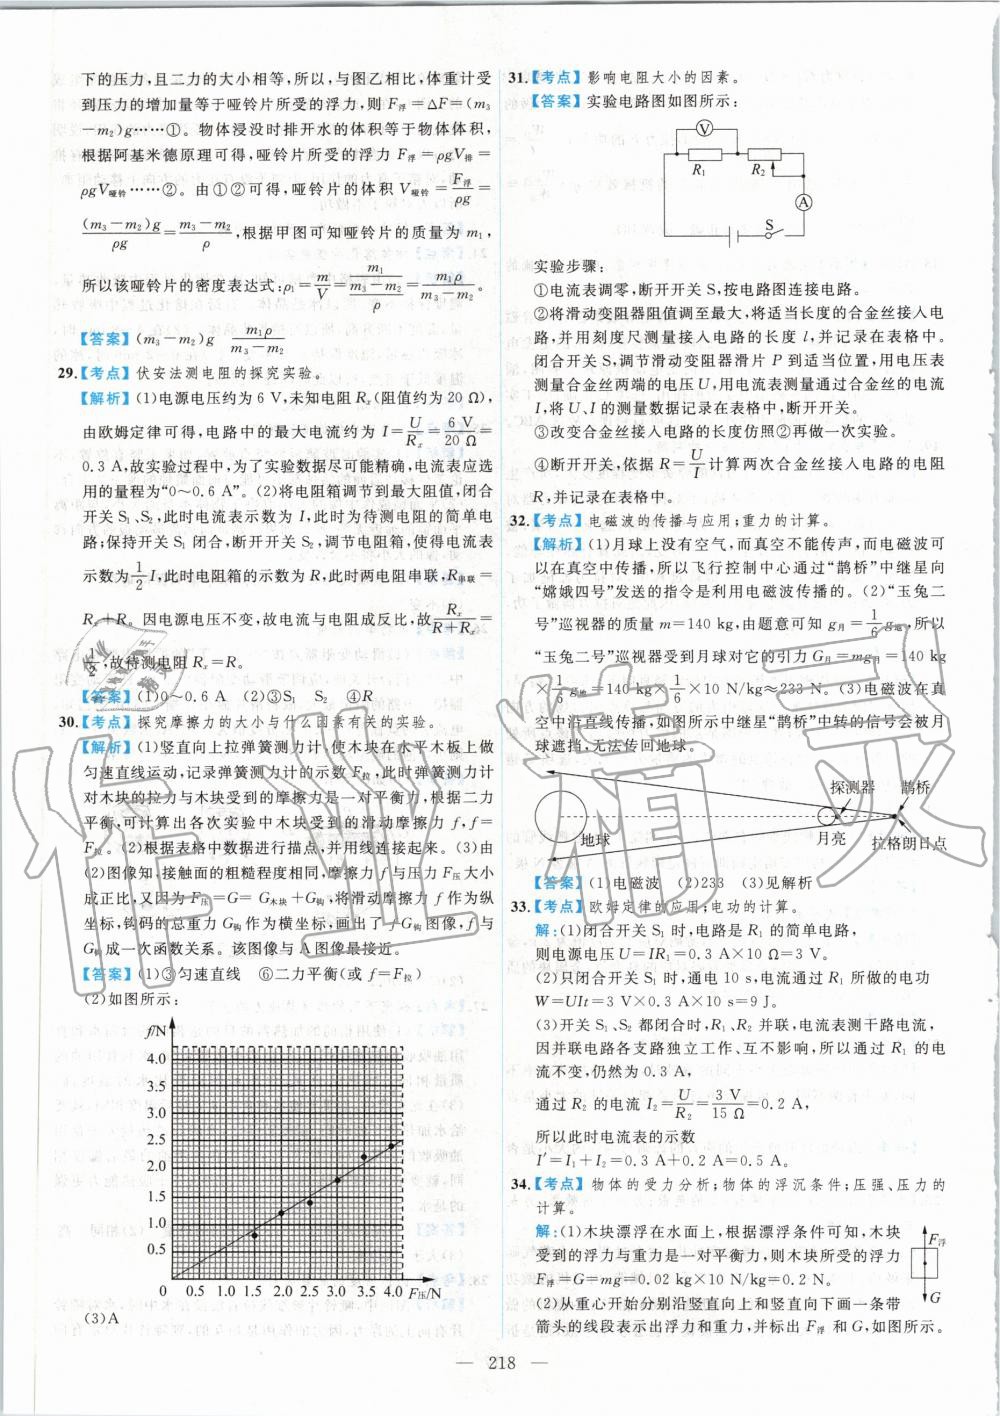 下的压力,且二力的大小相等,所以,与图乙相比,体重计受
到压力的增加量等于哑铃片所受的浮力,则 F浮=△F=(m₃
-m₂)g……①。物体浸没时排开水的体积等于物体体积,
根据阿基米德原理可得,哑铃片所受的浮力 F浮=ρgV排=
ρgV哑铃……②。由①②可得,哑铃片的体积 V哑铃=F浮/ρg=
(m₃-m₂)g/ρg=m₃-m₂/ρ,根据甲图可知哑铃片的质量为 m₁,
所以该哑铃片的密度表达式:ρ₁=m/V=m₁/(m₁-m₂/ρ)=m₁ρ/m₃-m₂。
【答案】(m₃-m₂)g m₁ρ/m₃-m₂
29.【考点】伏安法测电阻的探究实验。
【解析】(1)电源电压约为 6 V,未知电阻 Rₓ(阻值约为 20 Ω),
由欧姆定律可得,电路中的最大电流约为 I=U/Rₓ=6 V/20 Ω=
0.3 A,故实验过程中,为了实验数据尽可能精确,电流表应选
用的量程为“0~0.6 A”。(2)将电阻箱调节到最大阻值,闭合
开关 S₁、S₂,此时电流表示数为 I,此时为待测电阻的简单电
路;保持开关 S₁ 闭合,断开开关 S₂,调节电阻箱,使得电流表
示数为 1/2 I,此时电阻箱的示数为 R,此时两电阻串联,R串联=
Rₓ+R。因电源电压不变,故电流与电阻成反比,故 Rₓ/R+Rₓ=
1/2,故待测电阻 Rₓ=R。
【答案】(1)0~0.6 A (2)③S₁ S₂ ④R
30.【考点】探究摩擦力的大小与什么因素有关的实验。
【解析】(1)竖直向上拉弹簧测力计,使木块在水平木板上做
匀速直线运动,记录弹簧测力计的示数 F拉,此时弹簧测力计
对木块的拉力与木块受到的摩擦力是一对平衡力,根据二力
平衡,可计算出各次实验中木块受到的滑动摩擦力 f,f=
F拉。(2)根据表格中数据进行描点,并用线连接起来。(3)由
(2)图像知,接触面的粗糙程度相同,摩擦力 f 与压力 F压大小
成正比,又因为 F压=G=G木块+G钩,将滑动摩擦力 f 作为纵
坐标,钩码的总重力 G钩作为横坐标,画出了 f-G钩图像,f 与
G钩成一次函数关系。该图像与 A 图像最接近。
【答案】(1)③匀速直线 ⑥二力平衡(或 f=F拉)
(2)如图所示:
f/N
4.0
3.5
3.0
2.5
2.0
1.5
1.0
0.5
0 0.5 1.0 1.5 2.0 2.5 3.0 3.5 4.0 F压/N
(3)A
31.【考点】影响电阻大小的因素。
【答案】实验电路图如图所示:
V
R₁ R₂
A
S
实验步骤:
①电流表调零,断开开关 S,按电路图连接电路。
②将滑动变阻器阻值调至最大,将适当长度的合金丝接入电
路,并用刻度尺测量接入电路的长度 l,并记录在表格中。
闭合开关 S,调节滑动变阻器滑片 P 到适当位置,用电压表
测量合金丝两端的电压 U,用电流表测量通过合金丝的电流
I,将 U、I 的测量数据记录在表格中,断开开关。
③改变合金丝接入电路的长度仿照②再做一次实验。
④断开开关,依据 R=U/I 计算两次合金丝接入电路的电阻
R,并记录在表格中。
32.【考点】电磁波的传播与应用;重力的计算。
【解析】(1)月球上没有空气,而真空不能传声,而电磁波可
以在真空中传播,所以飞行控制中心通过“鹊桥”中继星向
“嫦娥四号”发送的指令是利用电磁波传播的。(2)“玉兔二
号”巡视器的质量 m=140 kg,由题意可知 g月=1/6 g地,所以
“玉兔二号”巡视器受到月球对它的引力 G月=mg月=140 kg
×1/6 g地=140 kg×1/6×10 N/kg≈233 N。(3)电磁波在真
空中沿直线传播,如图所示中继星“鹊桥”中转的信号会被月
球遮挡,无法传回地球。
探测器 鹊桥
地球 月亮 拉格朗日点
【答案】(1)电磁波 (2)233 (3)见解析
33.【考点】欧姆定律的应用;电功的计算。
解:(1)闭合开关 S₁ 时,电路是 R₁ 的简单电路,
则电源电压 U=IR₁=0.3 A×10 Ω=3 V。
(2)只闭合开关 S₁ 时,通电 10 s,电流通过 R₁ 所做的电功
W=UIt=3 V×0.3 A×10 s=9 J。
(3)开关 S₁、S₂ 都闭合时,R₁、R₂ 并联,电流表测干路电流,
因并联电路各支路独立工作、互不影响,所以通过 R₁ 的电
流不变,仍然为 0.3 A,
通过 R₂ 的电流 I₂=U/R₂=3 V/15 Ω=0.2 A,
所以此时电流表的示数
I′=I₁+I₂=0.3 A+0.2 A=0.5 A。
34.【考点】物体的受力分析;物体的浮沉条件;压强、压力的
计算。
解:(1)木块漂浮在水面上,根据漂浮条件可知,木块
受到的浮力与重力是一对平衡力,则木块所受的浮力
F浮=G=mg=0.02 kg×10 N/kg=0.2 N。
F浮
G
(2)从重心开始分别沿竖直向上和竖直向下画一条带
箭头的线段表示出浮力和重力,并标出 F浮 和 G,如图所示。
— 218 —